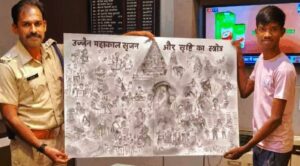 उज्जैन महाकाल सृजन और सृष्टि का स्त्रोत